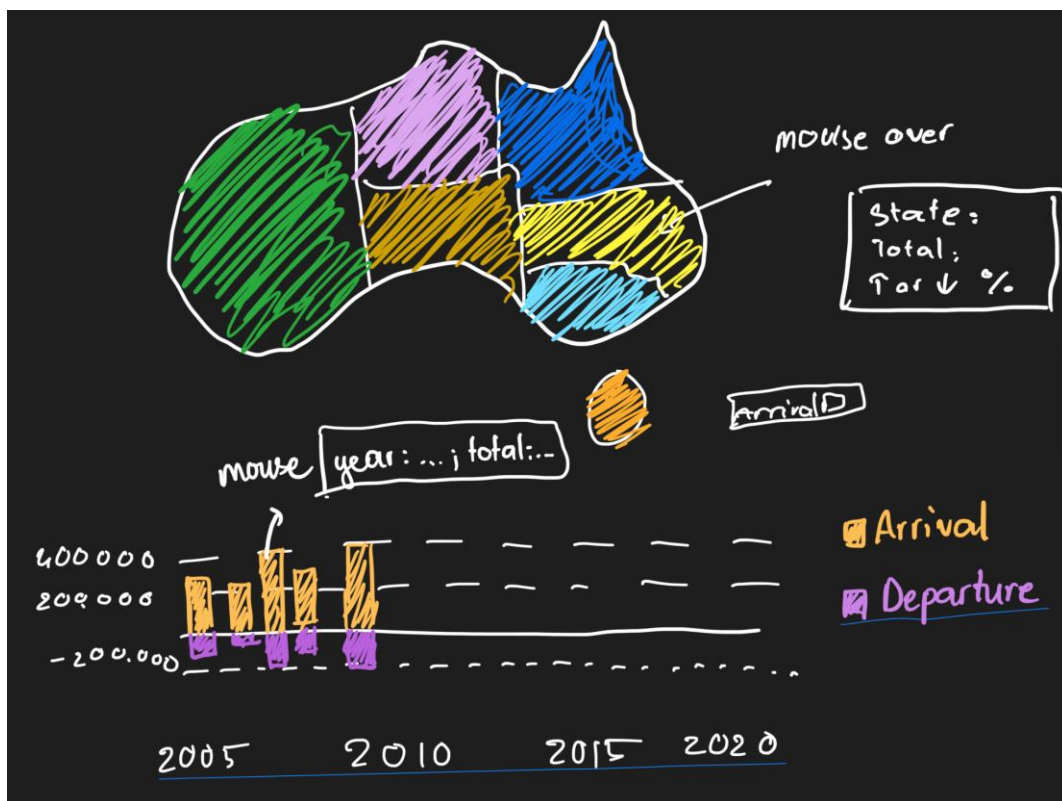 mouse over
State:
Total:
↑ or ↓ %
Arrival
mouse year: ...; total:...
400000
200.000
-200.000
Arrival
Departure
2005 2010 2015 2020